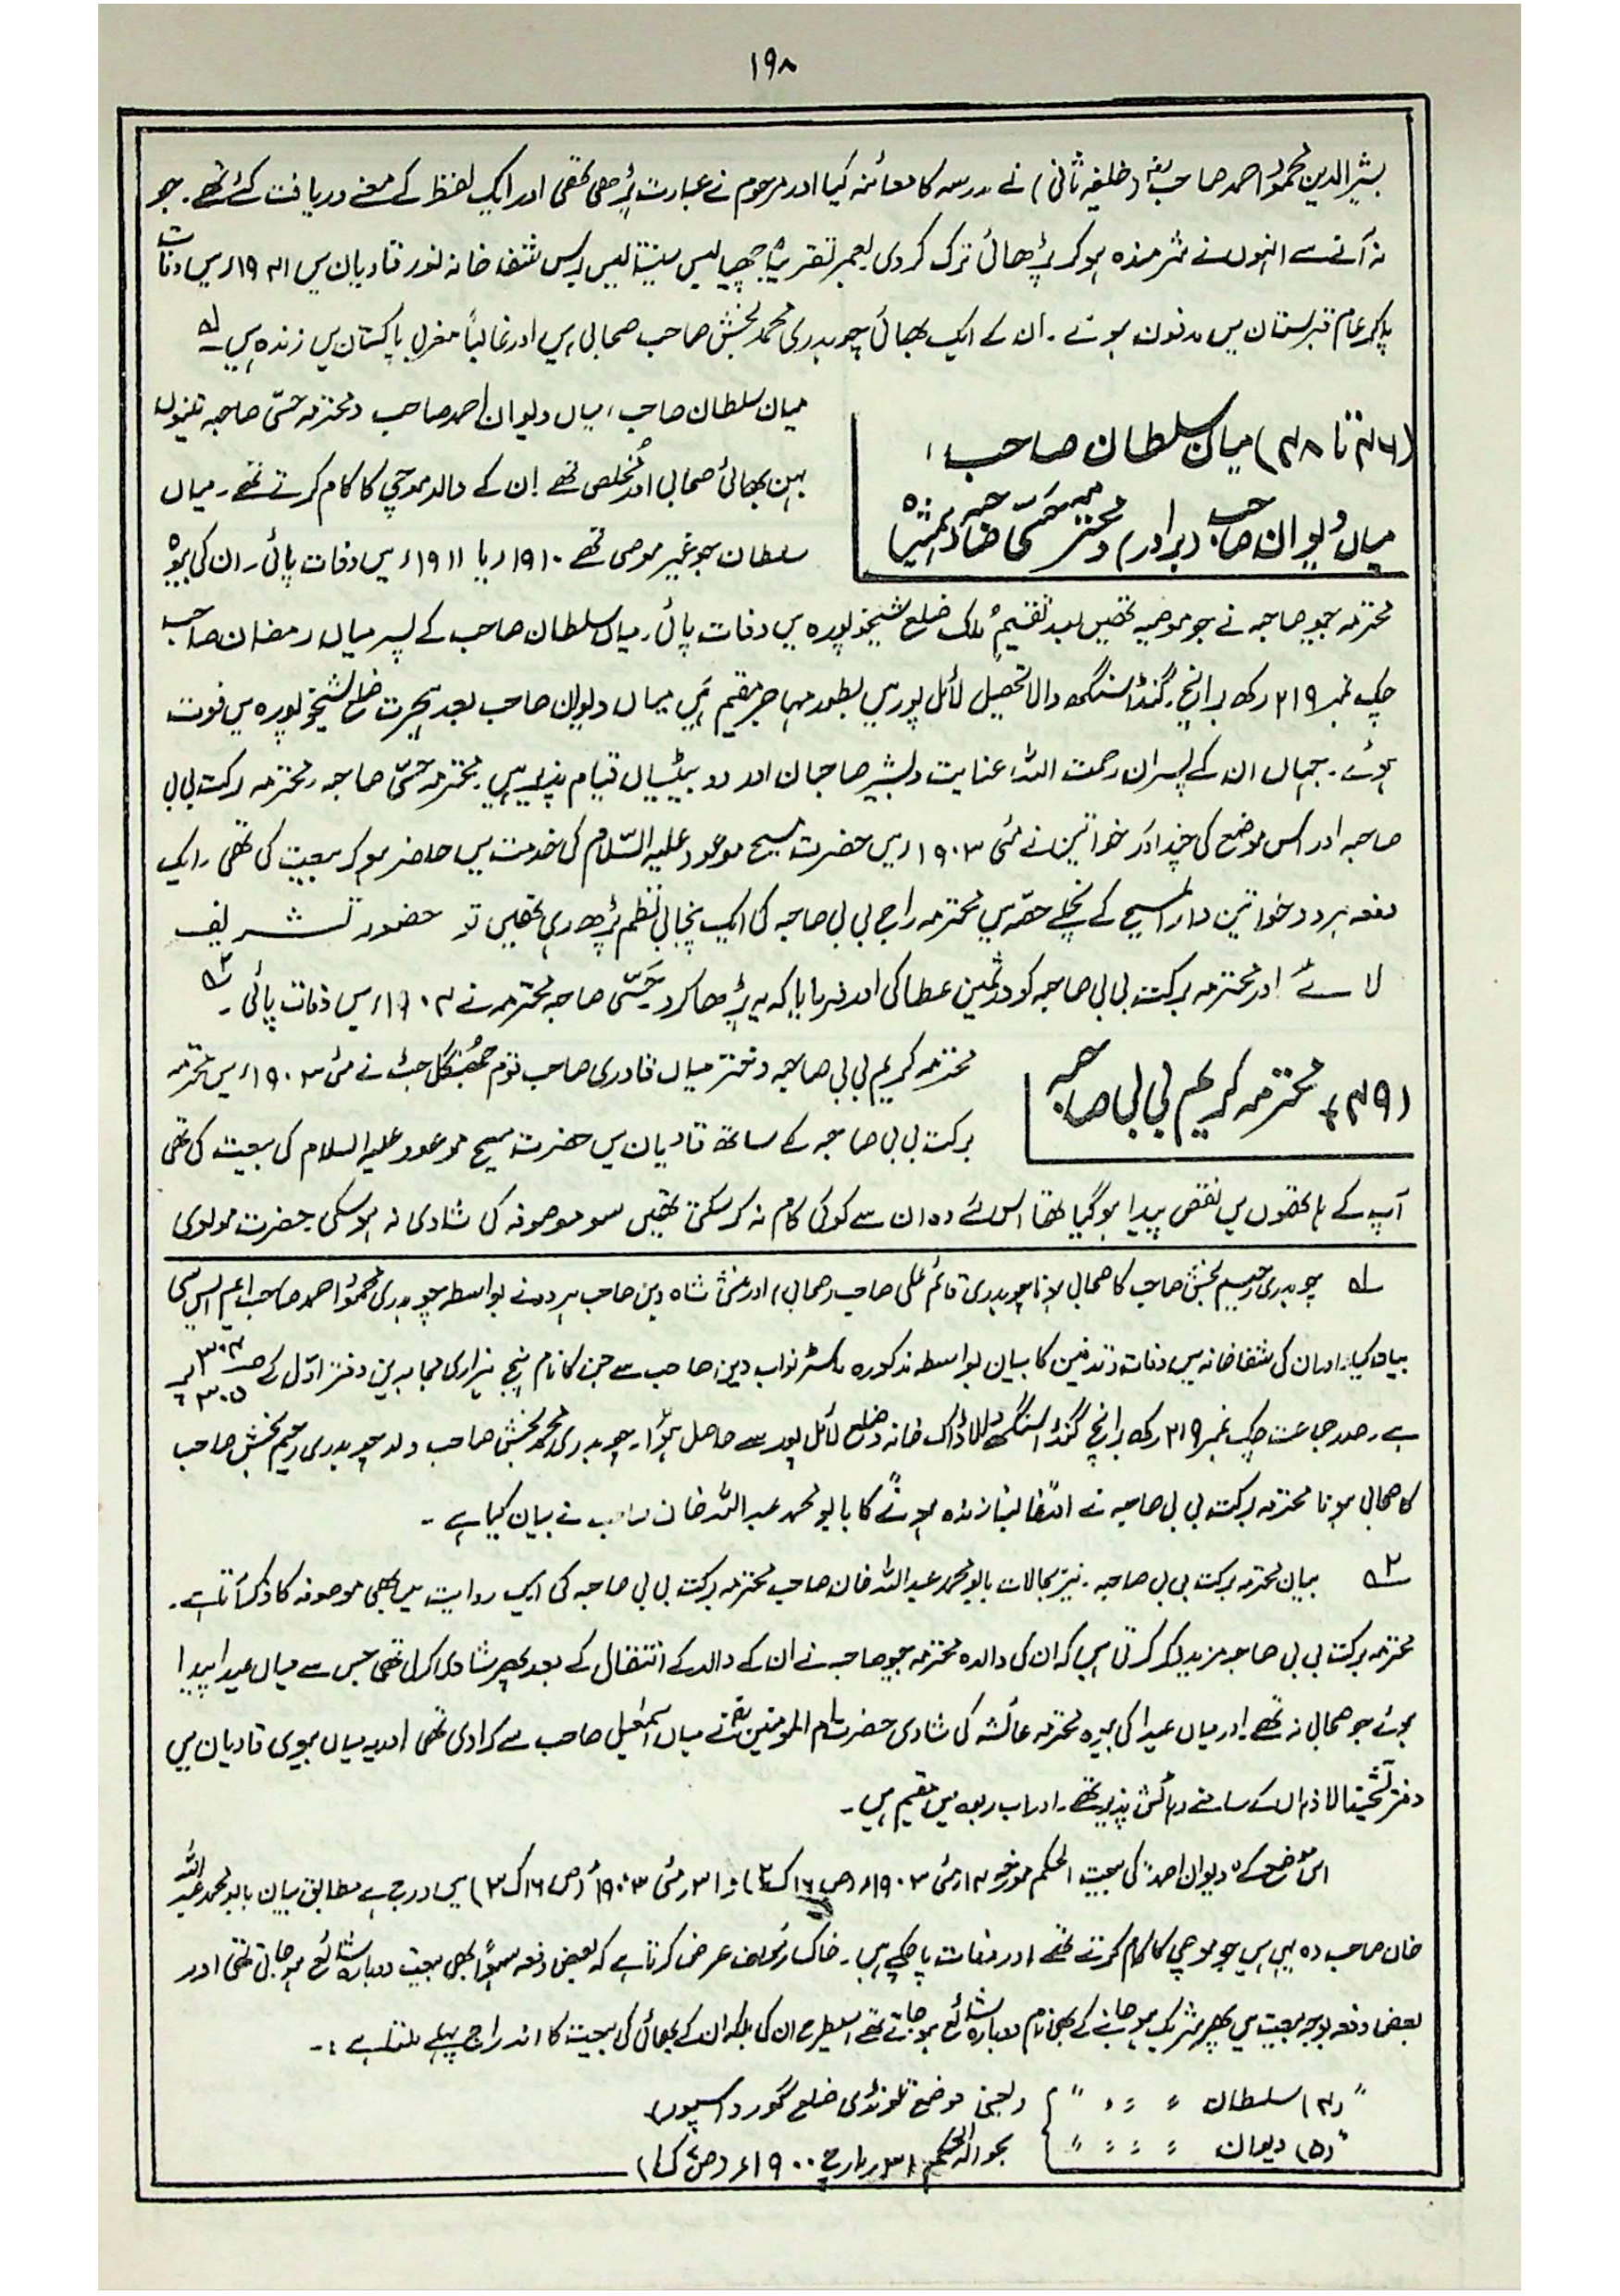 ۱۹۸
بشیر الدین محمود احمد صاحبؓ (خلیفہ ثانی) نے مدرسہ کا معائنہ کیا اور مرحوم نے عبارت پڑھی تھی اور ایک لفظ کے معنے دریافت کئے تھے۔ جو
نہ آنے سے انہوں نے شرمندہ ہو کر پڑھائی ترک کر دی۔ بعمر تقریباً چھیالیس سینتالیس برس شفا خانہ نور قادیان میں ۱۹۴۱ء میں وفات
پا کر عام قبرستان میں مدفون ہوئے۔ ان کے ایک بھائی چوہدری محمد بخش صاحب صحابی ہیں اور غالباً مغربی پاکستان میں زندہ ہیں۔ لہ
(۴۶ تا ۴۸) میاں سلطان صاحب،
میاں دیوان صاحب (برادر) و محترمہ حسّی صاحبہ (ہمشیرہ)
میاں سلطان صاحب، میاں دیوان احمد صاحب و محترمہ حسّی صاحبہ تینوں
بہن بھائی صحابی اور مخلص تھے۔ ان کے والد موچی کا کام کرتے تھے۔ میاں
سلطان جو غیر موصی تھے ۱۹۱۰ء یا ۱۹۱۱ء میں وفات پائی۔ ان کی بیوہ
محترمہ جیو صاحبہ نے جو موصیہ تھیں بعد تقسیم ملک ضلع شیخوپورہ میں وفات پائی۔ میاں سلطان صاحب کے پسر میاں رمضان صاحب
چک نمبر ۲۱۹ رکھ برانچ گنڈا سنگھ والا تحصیل لائل پور میں بطور مہاجر مقیم ہیں۔ میاں دیوان صاحب بعد ہجرت ضلع شیخوپورہ میں فوت
ہوئے۔ جہاں ان کے پسران رحمت اللہ، عنایت و بشیر صاحبان اور دو بیٹیاں قیام پذیر ہیں۔ محترمہ حسّی صاحبہ، محترمہ برکت بی بی
صاحبہ اور اس موضع کی چند اور خواتین نے مئی ۱۹۰۳ء میں حضرت مسیح موعود علیہ السّلام کی خدمت میں حاضر ہو کر بیعت کی تھی۔ ایک
دفعہ ہر دو خواتین دار المسیح کے نچلے حصّہ میں محترمہ راج بی بی صاحبہ کی ایک پنجابی نظم پڑھ رہی تھیں تو حضور تشریف
لائے اور محترمہ برکت بی بی صاحبہ کو درثمین عطا کی اور فرمایا کہ یہ پڑھا کرو۔ حَسّی صاحبہ محترمہ نے ۱۹۰۴ء میں وفات پائی۔ ۲ہ
(۴۹) محترمہ کریم بی بی صاحبہ
محترمہ کریم بی بی صاحبہ دختر میاں قادری صاحب قوم جھنگل جٹ نے مئی ۱۹۰۳ء میں محترمہ
برکت بی بی صاحبہ کے ساتھ قادیان میں حضرت مسیح موعود علیہ السلام کی بیعت کی تھی
آپ کے ہاتھوں میں نقص پیدا ہو گیا تھا اس لئے وہ ان سے کوئی کام نہ کر سکتی تھیں سو موصوفہ کی شادی نہ ہو سکی۔ حضرت مولوی
لہ چوہدری رحیم بخش صاحب کا صحابی ہونا چوہدری قائم علی صاحب (صحابی) اور منشی شاہ دین صاحب ہر دو نے بواسطہ چوہدری محمود احمد صاحب ایم ایس سی
بیان کیا۔ اور ان کی شفا خانہ میں وفات و تدفین کا بیان بواسطہ مذکورہ ماسٹر نواب دین صاحب سے جن کا نام پنج ہزاری مجاہدین دفتر اوّل کے صـ ۳۰۴ و ۳۰۵ پر
ہے۔ صدر جماعت چک نمبر ۲۱۹ رکھ برانچ گنڈا سنگھ والا ڈاک خانہ و ضلع لائل پور سے حاصل ہوا۔ چوہدری محمد بخش صاحب ولد چوہدری رحیم بخش صاحب
کا صحابی ہونا محترمہ برکت بی بی صاحبہ نے اور غالباً زندہ ہونے کا بابو محمد عبد اللہ خان صاحب نے بیان کیا ہے۔
۲ہ بیان محترمہ برکت بی بی صاحبہ۔ نیز بحالات بابو محمد عبد اللہ خان صاحب محترمہ برکت بی بی صاحبہ کی ایک روایت میں بھی موصوفہ کا ذکر آتا ہے۔
محترمہ برکت بی بی صاحبہ مزید ذکر کرتی ہیں کہ ان کی والدہ محترمہ جیو صاحبہ نے ان کے والد کے انتقال کے بعد پھر شادی کر لی تھی جس سے میاں عیدا پیدا
ہوئے جو صحابی نہ تھے۔ اور میاں عیدا کی بیوہ محترمہ عائشہ کی شادی حضرت ام المومنینؓ نے میاں اسمٰعیل صاحب سے کرا دی تھی اور یہ میاں بیوی قادیان میں
دفتر تشحیذ الاذہان کے سامنے رہائش پذیر تھے۔ اور اب ربوہ میں مقیم ہیں۔
اس موضع کے "دیوان احمد" کی بیعت الحکم مورخہ ۱۴ مئی ۱۹۰۳ء (ص ۱۶ ک ۲) و ۳۱ مئی ۱۹۰۳ء (ص ۱۶ ک ۳) میں درج ہے مطابق بیان بابو محمد عبد اللہ
خان صاحب وہ یہی ہیں جو موچی کا کام کرتے تھے۔ اور وفات پا چکے ہیں۔ خاکسار مؤلف عرض کرتا ہے کہ بعض دفعہ سہواً بھی بیعت دوبارہ شائع ہو جاتی تھی اور
بعض دفعہ بوجہ بیعت میں پھر شریک ہو جانے کے بھی نام دوبارہ شائع ہو جاتے تھے اسطرح ان کی بلکہ ان کے بھائی کی بیعت کا اندراج پہلے ملتا ہے :۔
"(۴) سلطان 〃 〃 〃" } (یعنی موضع تلونڈی ضلع گورداسپور)
"(۵) دیوان 〃 〃 〃" } بحوالہ الحکم ۳۱ مارچ ۱۹۰۰ء